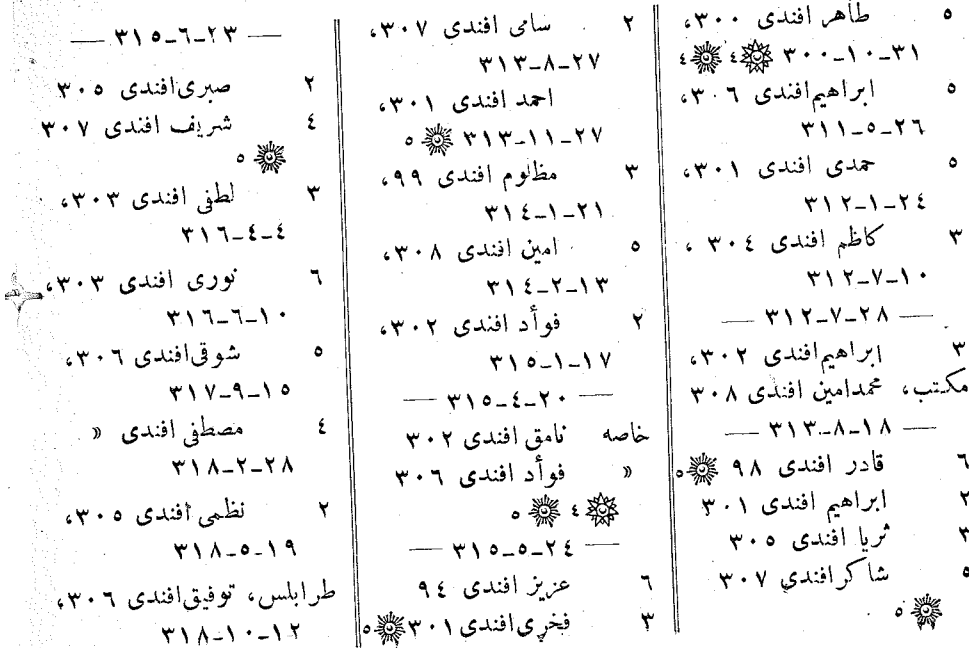 ٥ طاهر افندی ٣٠٠،
٣١-١٠-٣٠٠ ٤ ٤
٥ ابراهیم افندی ٣٠٦،
٢٦-٥-٣١١
٥ حمدی افندی ٣٠١،
٢٤-١-٣١٢
٣ کاظم افندی ٣٠٤ ،
١٠-٧-٣١٢
— ٢٨-٧-٣١٢ —
٣ ابراهیم افندی ٣٠٢،
مکتب، محمدامین افندی ٣٠٨
— ١٨-٨-٣١٣ —
٦ قادر افندی ٩٨ ٥
٢ ابراهیم افندی ٣٠١
٣ ثریا افندی ٣٠٥
٥ شاکر افندی ٣٠٧
٥
٢ سامی افندی ٣٠٧،
٢٧-٨-٣١٣
احمد افندی ٣٠١،
٢٧-١١-٣١٣ ٥
٣ مظلوم افندی ٩٩،
٢١-١-٣١٤
٥ امین افندی ٣٠٨،
١٣-٢-٣١٤
٢ فوأد افندی ٣٠٢،
١٧-١-٣١٥
— ٢٠-٤-٣١٥ —
خاصه نامق افندی ٣٠٢
« فوأد افندی ٣٠٦
٤ ٥
— ٢٤-٥-٣١٥ —
٦ عزیز افندی ٩٤
٣ فخری افندی ٣٠١ ٥
— ٢٣-٦-٣١٥ —
٢ صبری افندی ٣٠٥
٤ شریف افندی ٣٠٧
٥
٣ لطفی افندی ٣٠٣،
٤-٤-٣١٦
٦ نوری افندی ٣٠٣،
١٠-٦-٣١٦
٥ شوقی افندی ٣٠٦،
١٥-٩-٣١٧
٤ مصطفی افندی «
٢٨-٢-٣١٨
٢ نظمی افندی ٣٠٥،
١٩-٥-٣١٨
طرابلس، توفیق افندی ٣٠٦،
١٢-١٠-٣١٨